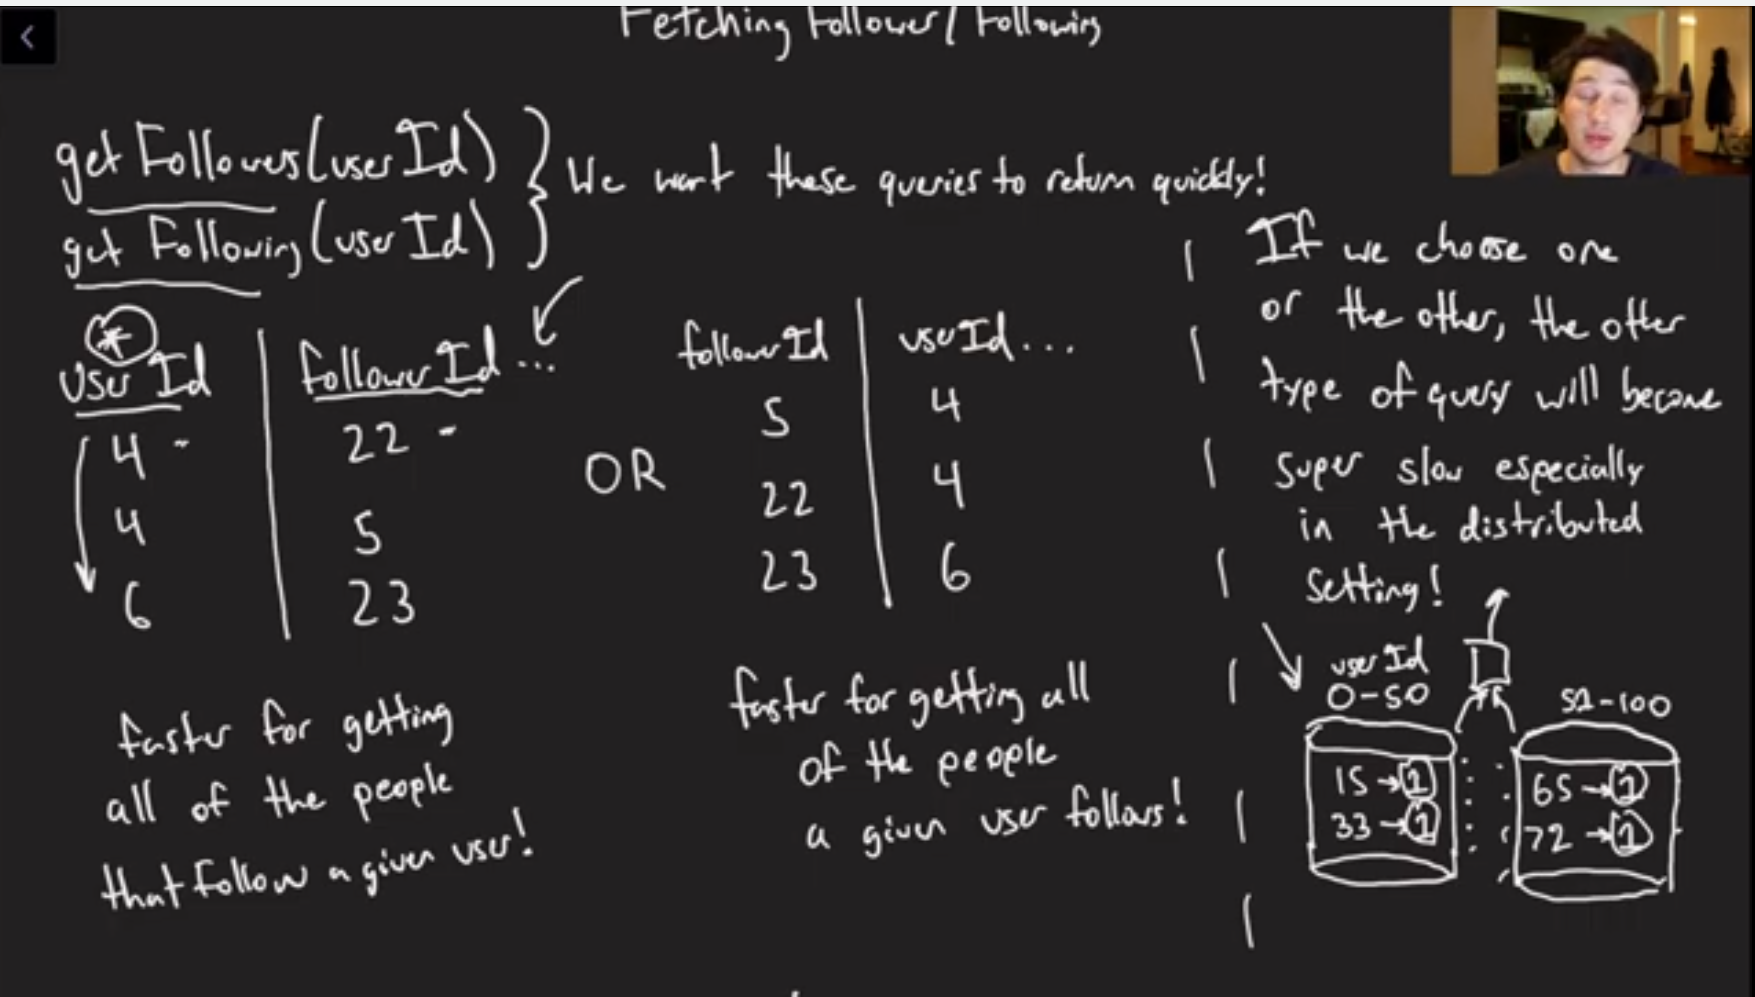 Fetching Follower/Following
get Followers(userId)
get Following(userId)
We want these queries to return quickly!
*
User Id | follower Id...
4 - | 22 -
4 | 5
6 | 23
faster for getting
all of the people
that follow a given user!
OR
followerId | userId...
5 | 4
22 | 4
23 | 6
faster for getting all
of the people
a given user follows!
If we choose one
or the other, the other
type of query will become
super slow especially
in the distributed
setting!
userId
0-50
15→1
33→1
51-100
65→1
72→1